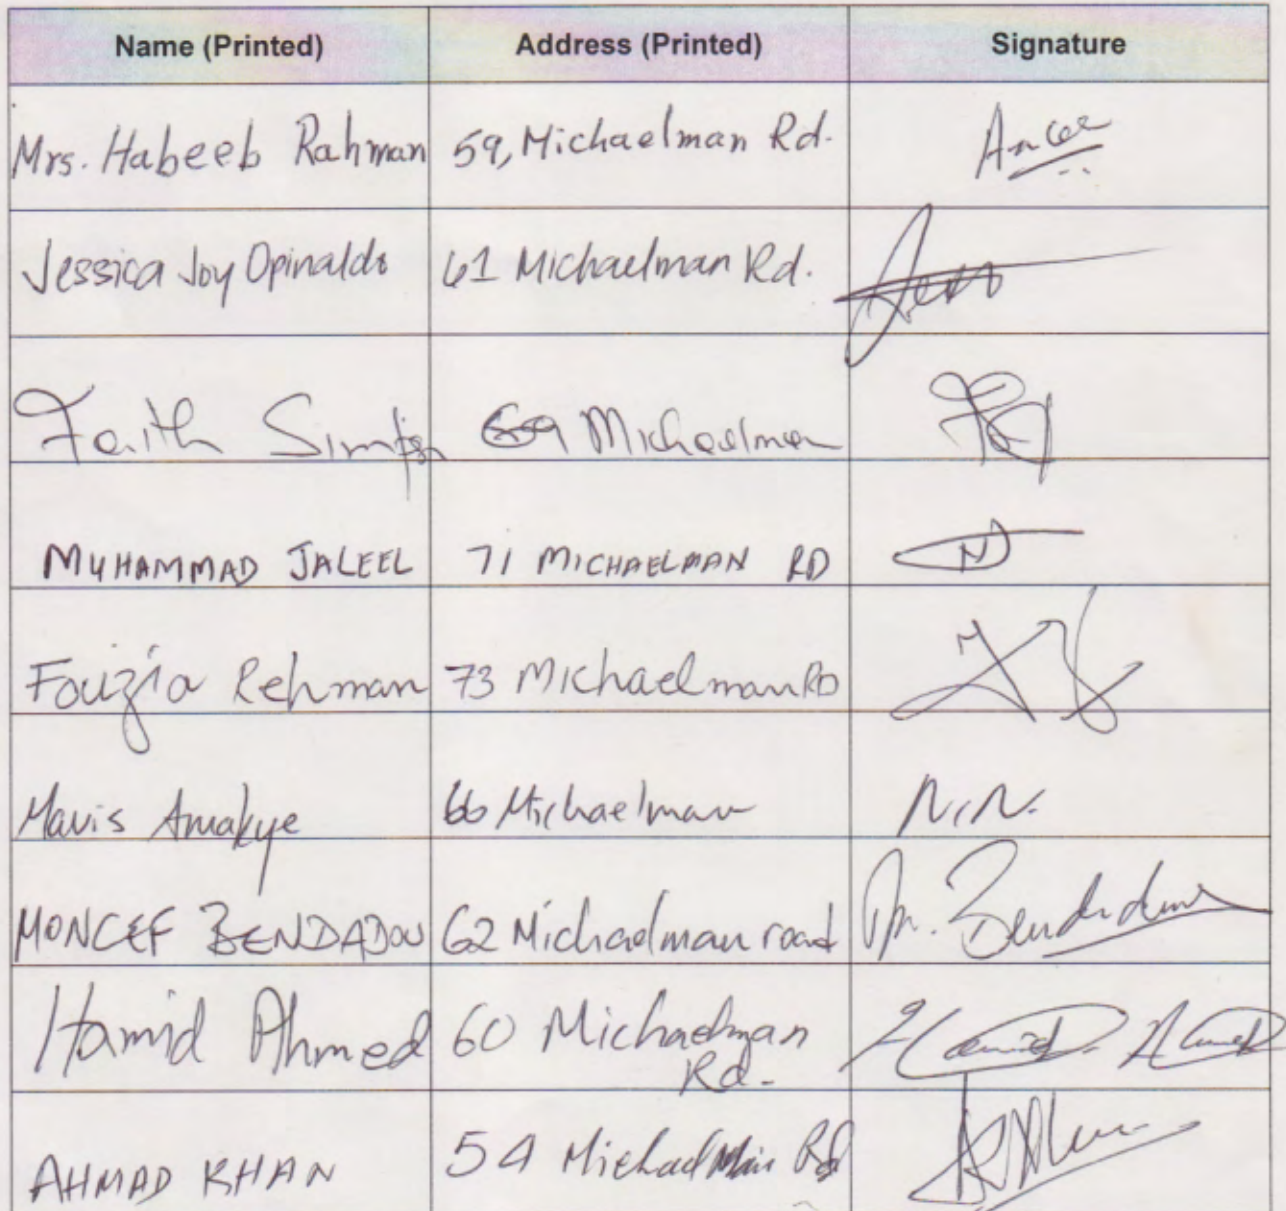 Name (Printed) Address (Printed) Signature
Mrs. Habeeb Rahman 59, Michaelman Rd.
Jessica Joy Opinaldo 61 Michaelman Rd.
Faith 69 Michaelman
MUHAMMAD JALEEL 71 MICHAELMAN RD
Fouzia Rehman 73 Michaelman RD
Mavis Amakye 66 Michaelman N.N.
MONCEF BENDADOU 62 Michaelman road
Hamid Ahmed 60 Michaelman
Rd.
AHMAD KHAN 54 Michaelman Rd